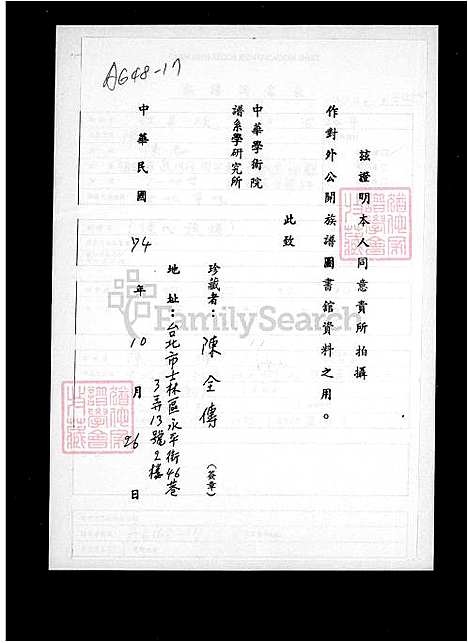 A648-17
茲證明本人同意貴所拍攝
作對外公開族譜圖書館資料之用。
此致
中華學術院
譜系學研究所
珍藏者：陳全傳（簽章）
地址：台北市士林區永平街46巷
3弄13號2樓
中華民國74年10月26日
FamilySearch